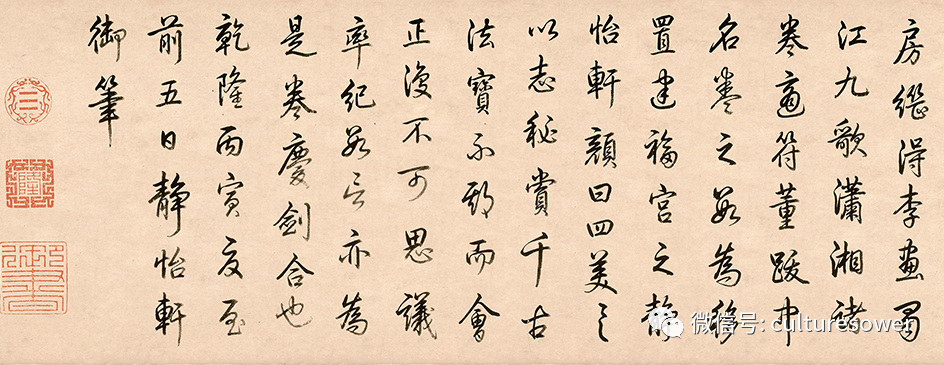 房繼得李畫蜀
江九歌瀟湘諸
卷適符董跋中
名卷之數為移
置建福宮之靜
怡軒顏曰四美具
以志秘賞千古
法寶不期而會
正復不可思議
率紀數言亦為
是卷慶劍合也
乾隆丙寅夏至
前五日靜怡軒
御筆
乾隆
御書
微信号: culturesower